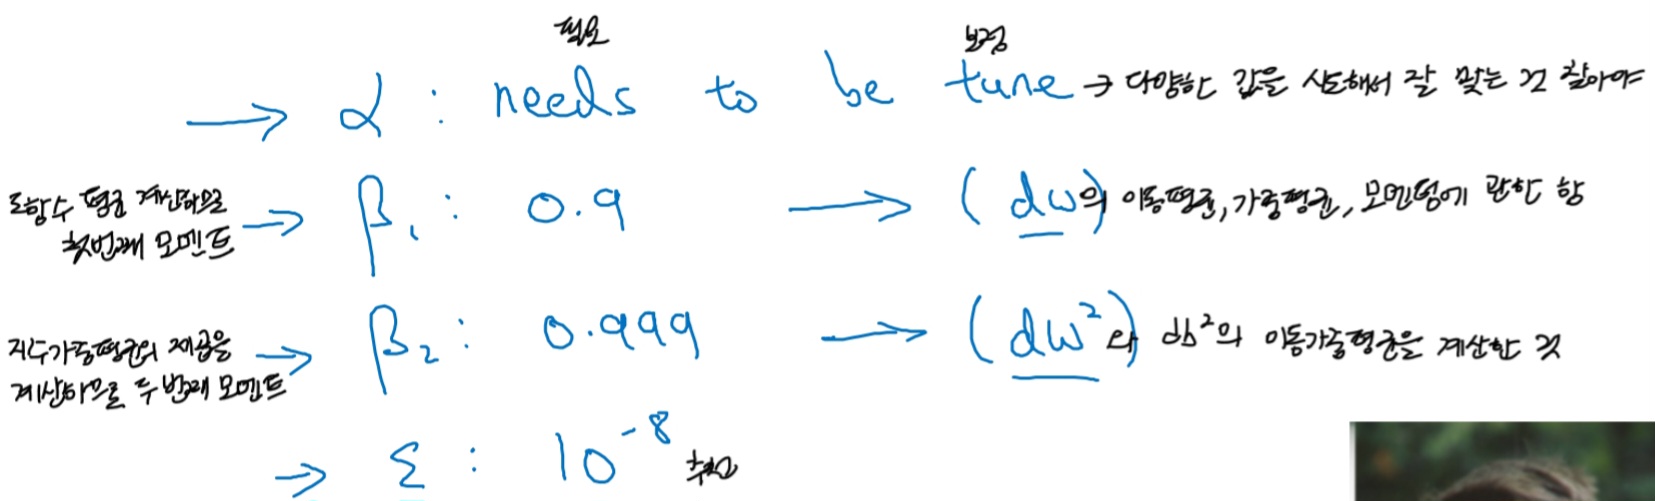 필요 보정
→ α : needs to be tune → 다양한 값을 시도해서 잘 맞는 것 찾아야
도함수 평균 계산하므로
첫번째 모멘트 → β₁ : 0.9 → (dw)의 이동평균, 가중평균, 모멘텀에 관한 항
지수가중평균의 제곱을
계산하므로 두 번째 모멘트 → β₂ : 0.999 → (dw²)와 db²의 이동가중평균을 계산한 것
→ ε : 10⁻⁸ 추천